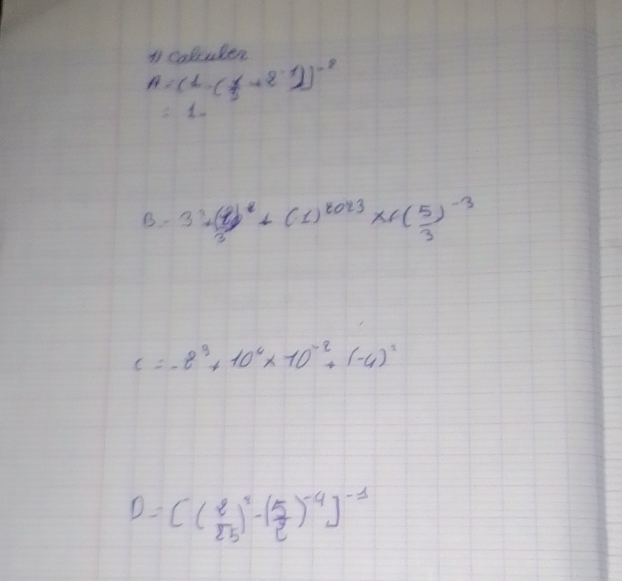 1) Calculer
A = (1 - (1/3 + 2^-1)]^-2
= 1 -
B = 3 + (2/3)^2 + (-1)^2023 × (5/3)^-3
C = -2^3 + 10^4 × 10^-2 + (-4)
D = [(2/25)^2 - (5/2)^-4]^-1